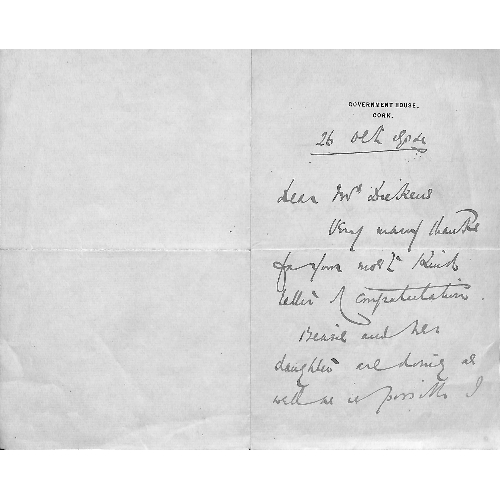 GOVERNMENT HOUSE.
CORK.
26 Oct
Dear Mrs Dickens
Very many thanks
for your most kind
letter of congratulation.
and her
daughter are doing as
well as is possible I